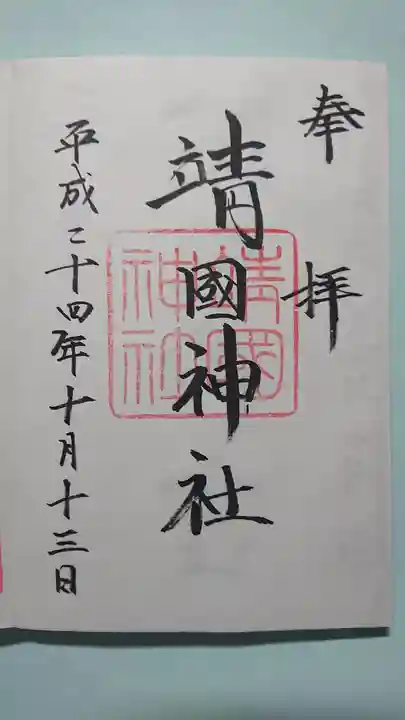 奉拝
靖國神社
靖國
神社
平成二十四年十月十三日